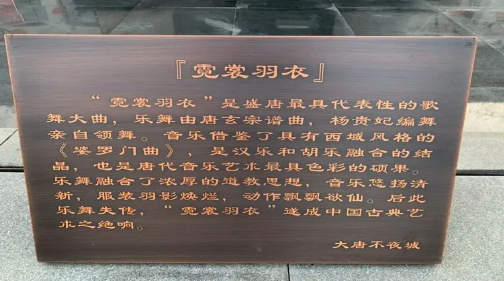 『霓裳羽衣』
“霓裳羽衣”是盛唐最具代表性的歌
舞大曲，乐舞由唐玄宗谱曲，杨贵妃编舞
亲自领舞。音乐借鉴了具有西域风格的
《婆罗门曲》，是汉乐和胡乐融合的结
晶，也是唐代音乐艺术最具色彩的硕果。
乐舞融合了浓厚的道教思想，音乐悠扬清
新，服装羽影焕烂，动作飘飘欲仙。后此
乐舞失传，“霓裳羽衣”遂成中国古典艺
术之绝响。
大唐不夜城